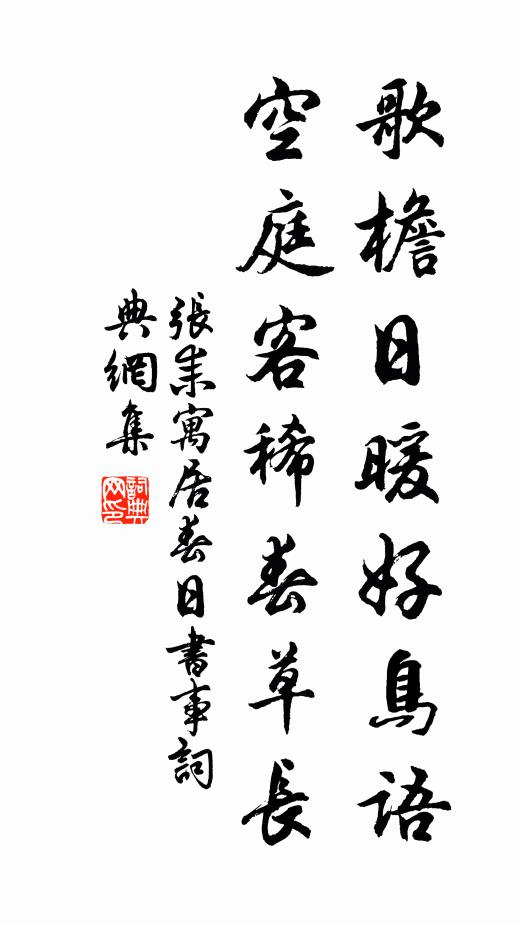 歌檐日暖好鳥語
空庭客稀春草長
張耒寓居春日書事詞
典網集
詞典
网印